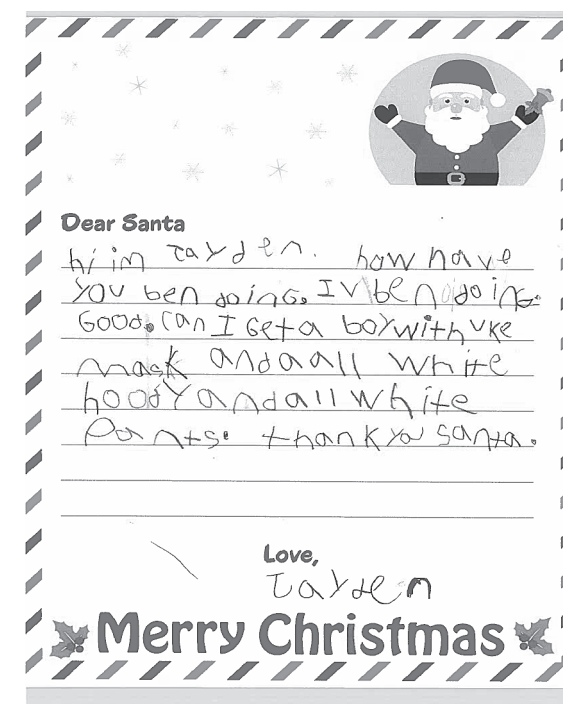 Dear Santa
hi im Tayden. how have
you ben doing. IV ben doing.
Good. Can I Get a boy with uke
mask and a all white
hoody and all white
Pants. thank you santa.
Love,
Tayden
Merry Christmas